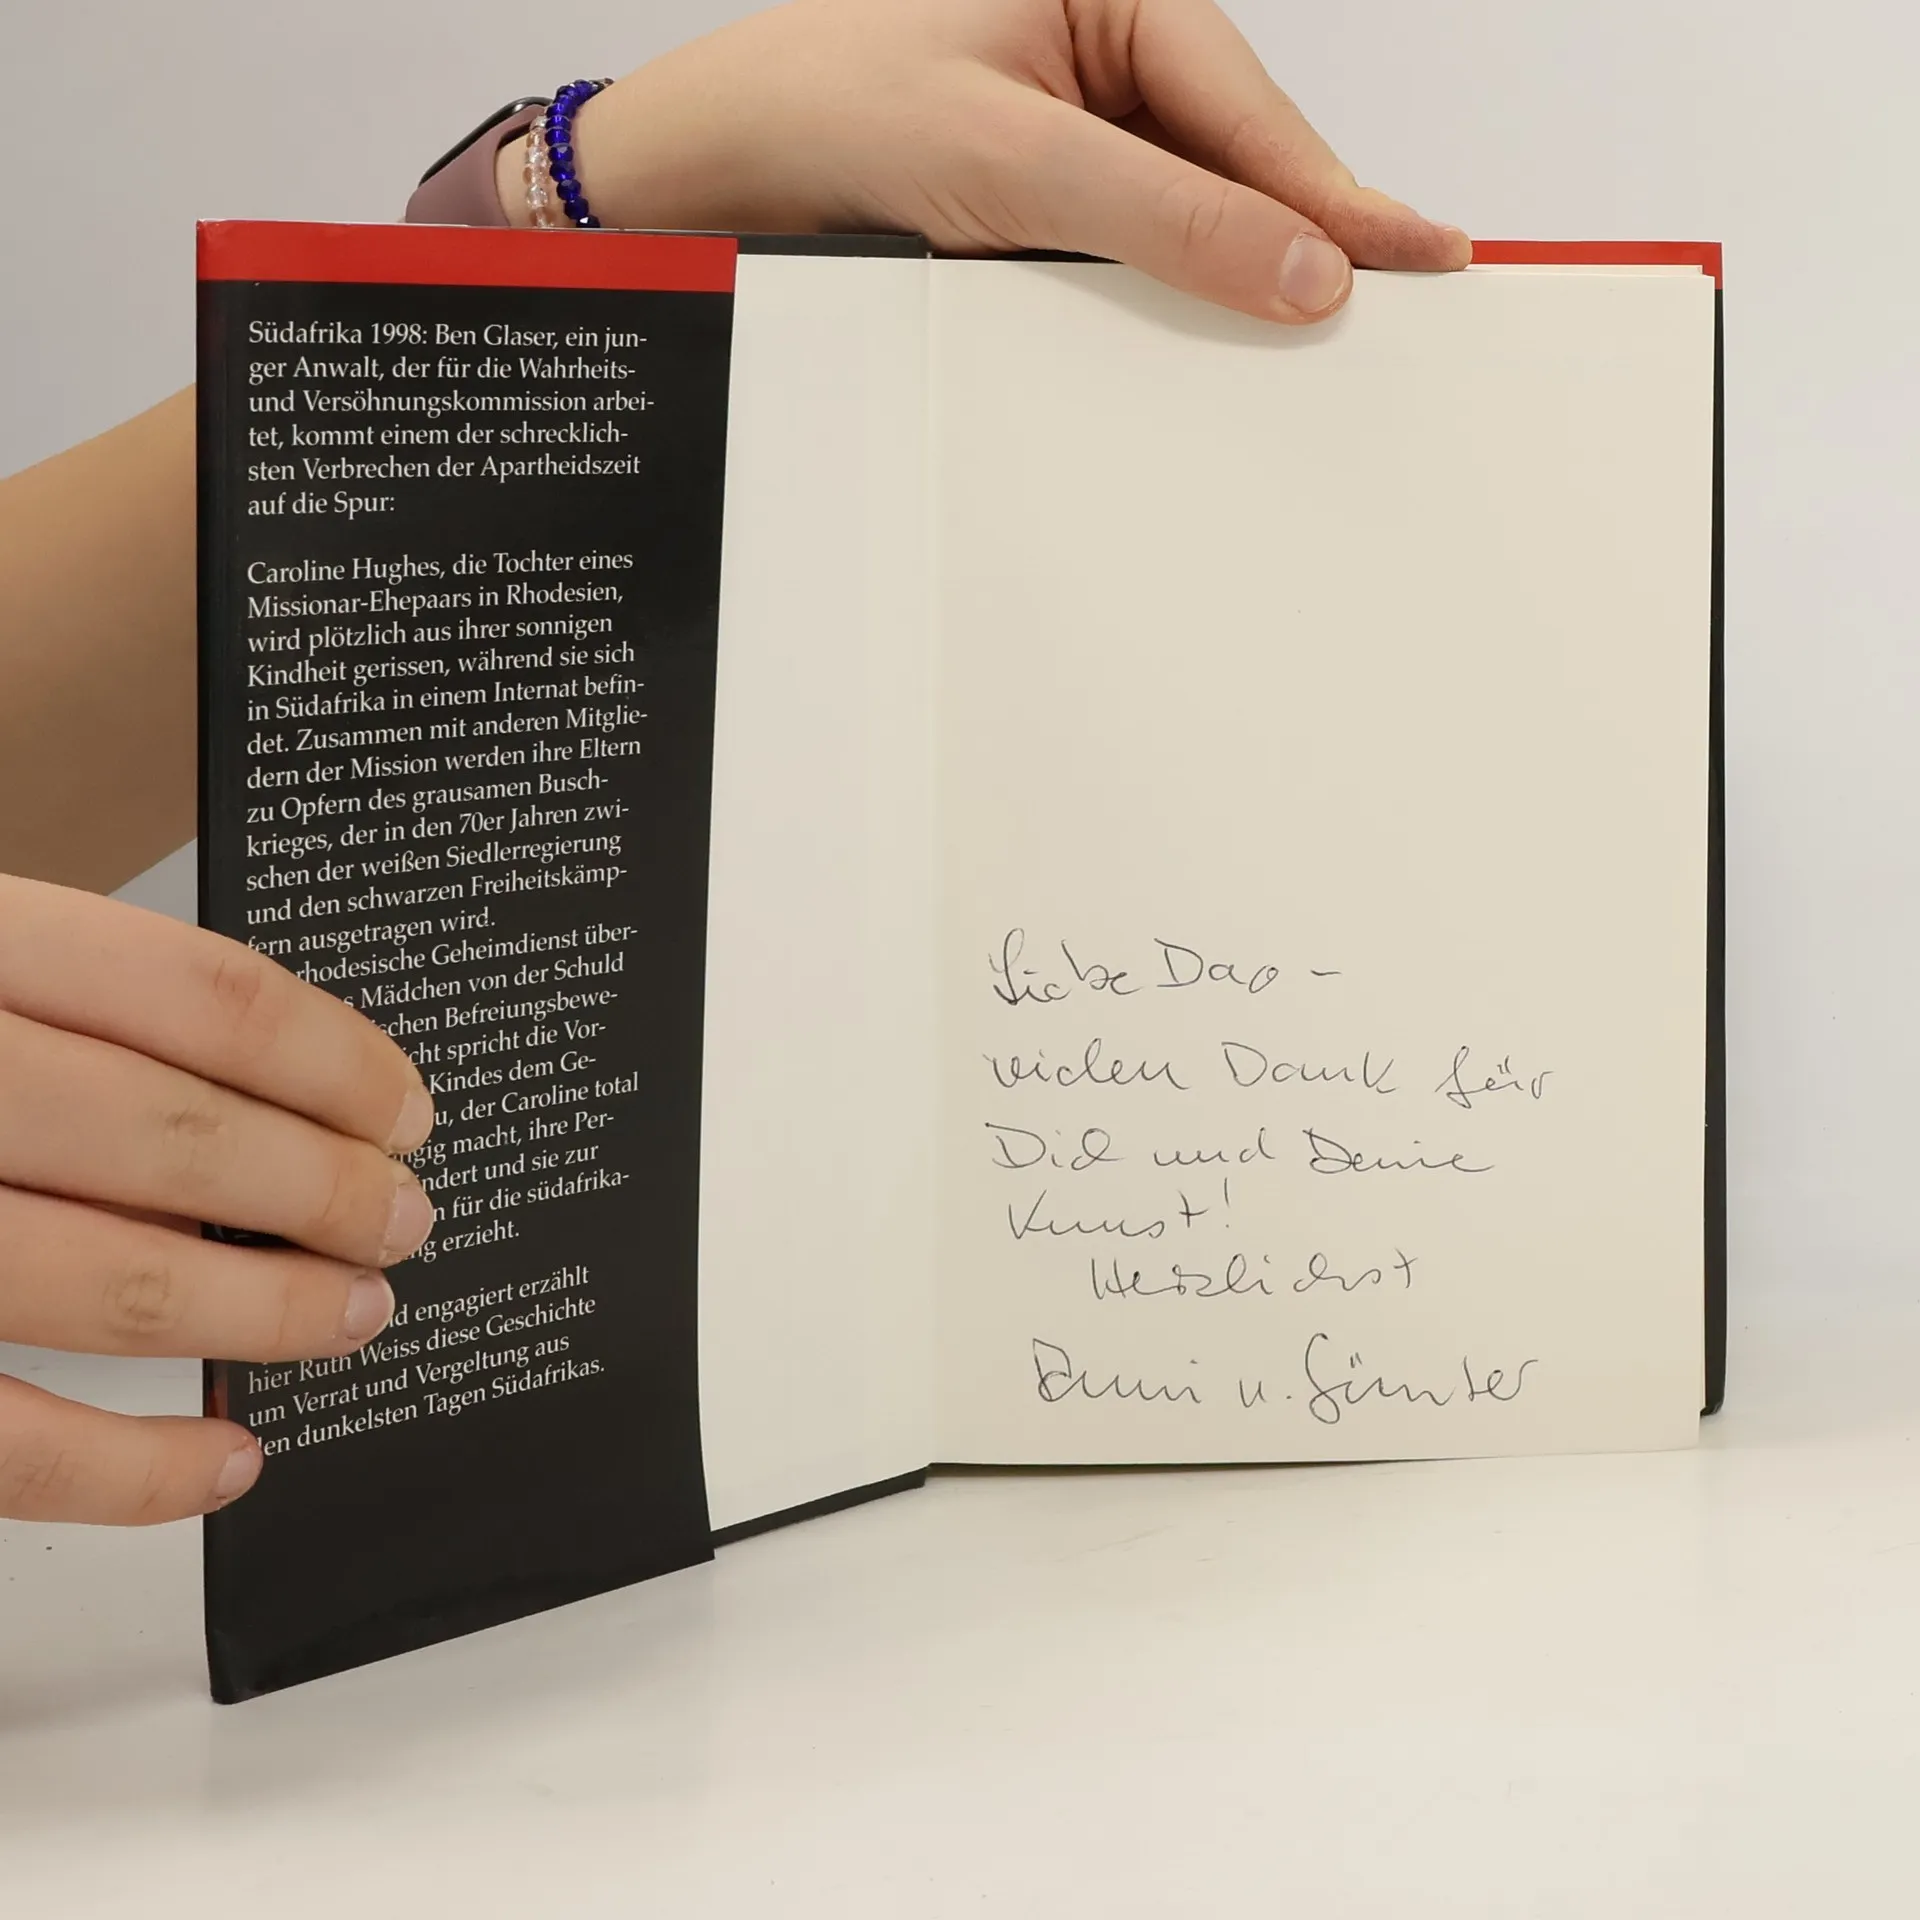 Südafrika 1998: Ben Glaser, ein jun-
ger Anwalt, der für die Wahrheits-
und Versöhnungskommission arbei-
tet, kommt einem der schrecklich-
sten Verbrechen der Apartheidszeit
auf die Spur:
Caroline Hughes, die Tochter eines
Missionar-Ehepaars in Rhodesien,
wird plötzlich aus ihrer sonnigen
Kindheit gerissen, während sie sich
in Südafrika in einem Internat befin-
det. Zusammen mit anderen Mitglie-
dern der Mission werden ihre Eltern
zu Opfern des grausamen Busch-
krieges, der in den 70er Jahren zwi-
schen der weißen Siedlerregierung
und den schwarzen Freiheitskämp-
fern ausgetragen wird.
rhodesische Geheimdienst über-
s Mädchen von der Schuld
schen Befreiungsbewe-
cht spricht die Vor-
Kindes dem Ge-
u, der Caroline total
gig macht, ihre Per-
ndert und sie zur
n für die südafrika-
ng erzieht.
nd engagiert erzählt
hier Ruth Weiss diese Geschichte
um Verrat und Vergeltung aus
den dunkelsten Tagen Südafrikas.
Liebe Dao –
vielen Dank für
Dich und Deine
Kunst!
Herzlichst
u. Günter